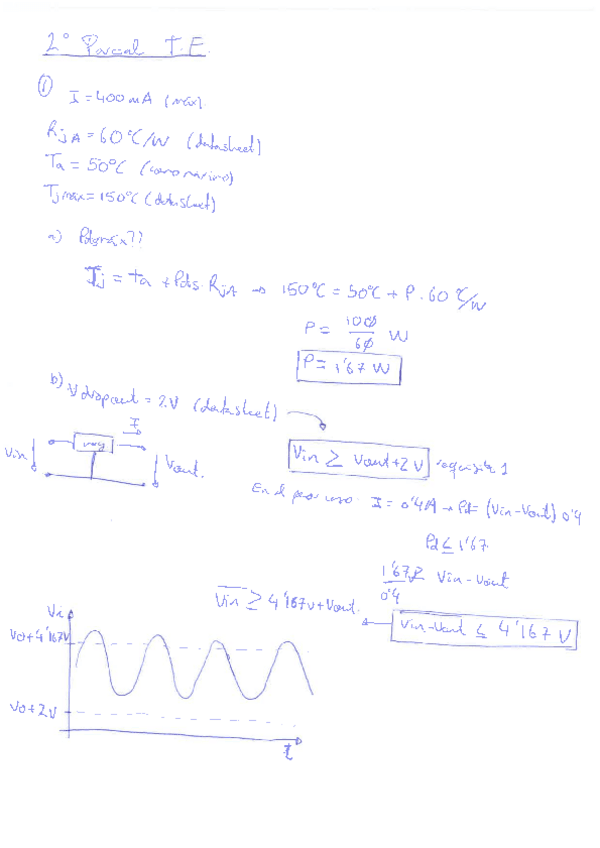 2º Parcial T.E.
①
I = 400mA (máx)
RjA = 60ºC/W (datasheet)
Ta = 50ºC (como máximo)
Tjmax = 150ºC (datasheet)
a) Pdmáx??
Tj = ta + Pdis·RjA → 150ºC = 50ºC + P·60 ºC/W
P = 100/60 W
P = 1'67 W
b) Vdropout = 2V (datasheet)
I
Vin
vreg
Vout.
Vin ≥ Vout+2V requisito 1
En el peor caso I = 0'4A → Pd = (Vin-Vout) 0'4
Pd ≤ 1'67
1'67/0'4 ≥ Vin-Vout
Vin-Vout ≤ 4'167 V
Vin ≥ 4'167V+Vout.
Vin
Vo+4'167V
Vo+2V
t